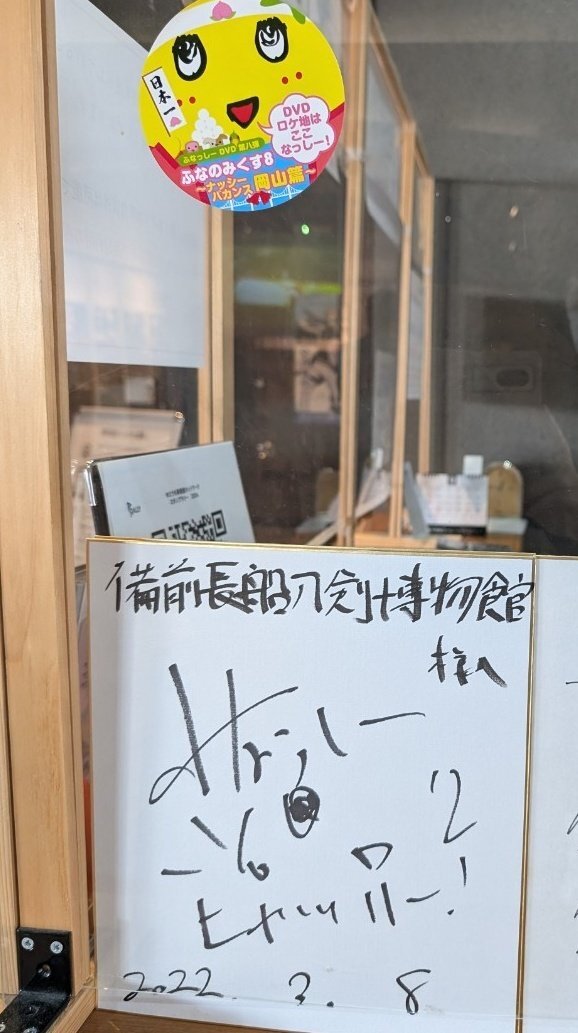 日本一
DVD
ロケ地は
ここ
なっしー!
ふなっしー DVD 第八弾
ふなのみくす8
〜ナッシー
バカンス 岡山篇〜
備前長船刀剣博物館
様
ふなっしー
ヒャッハー!
2022. 3. 8